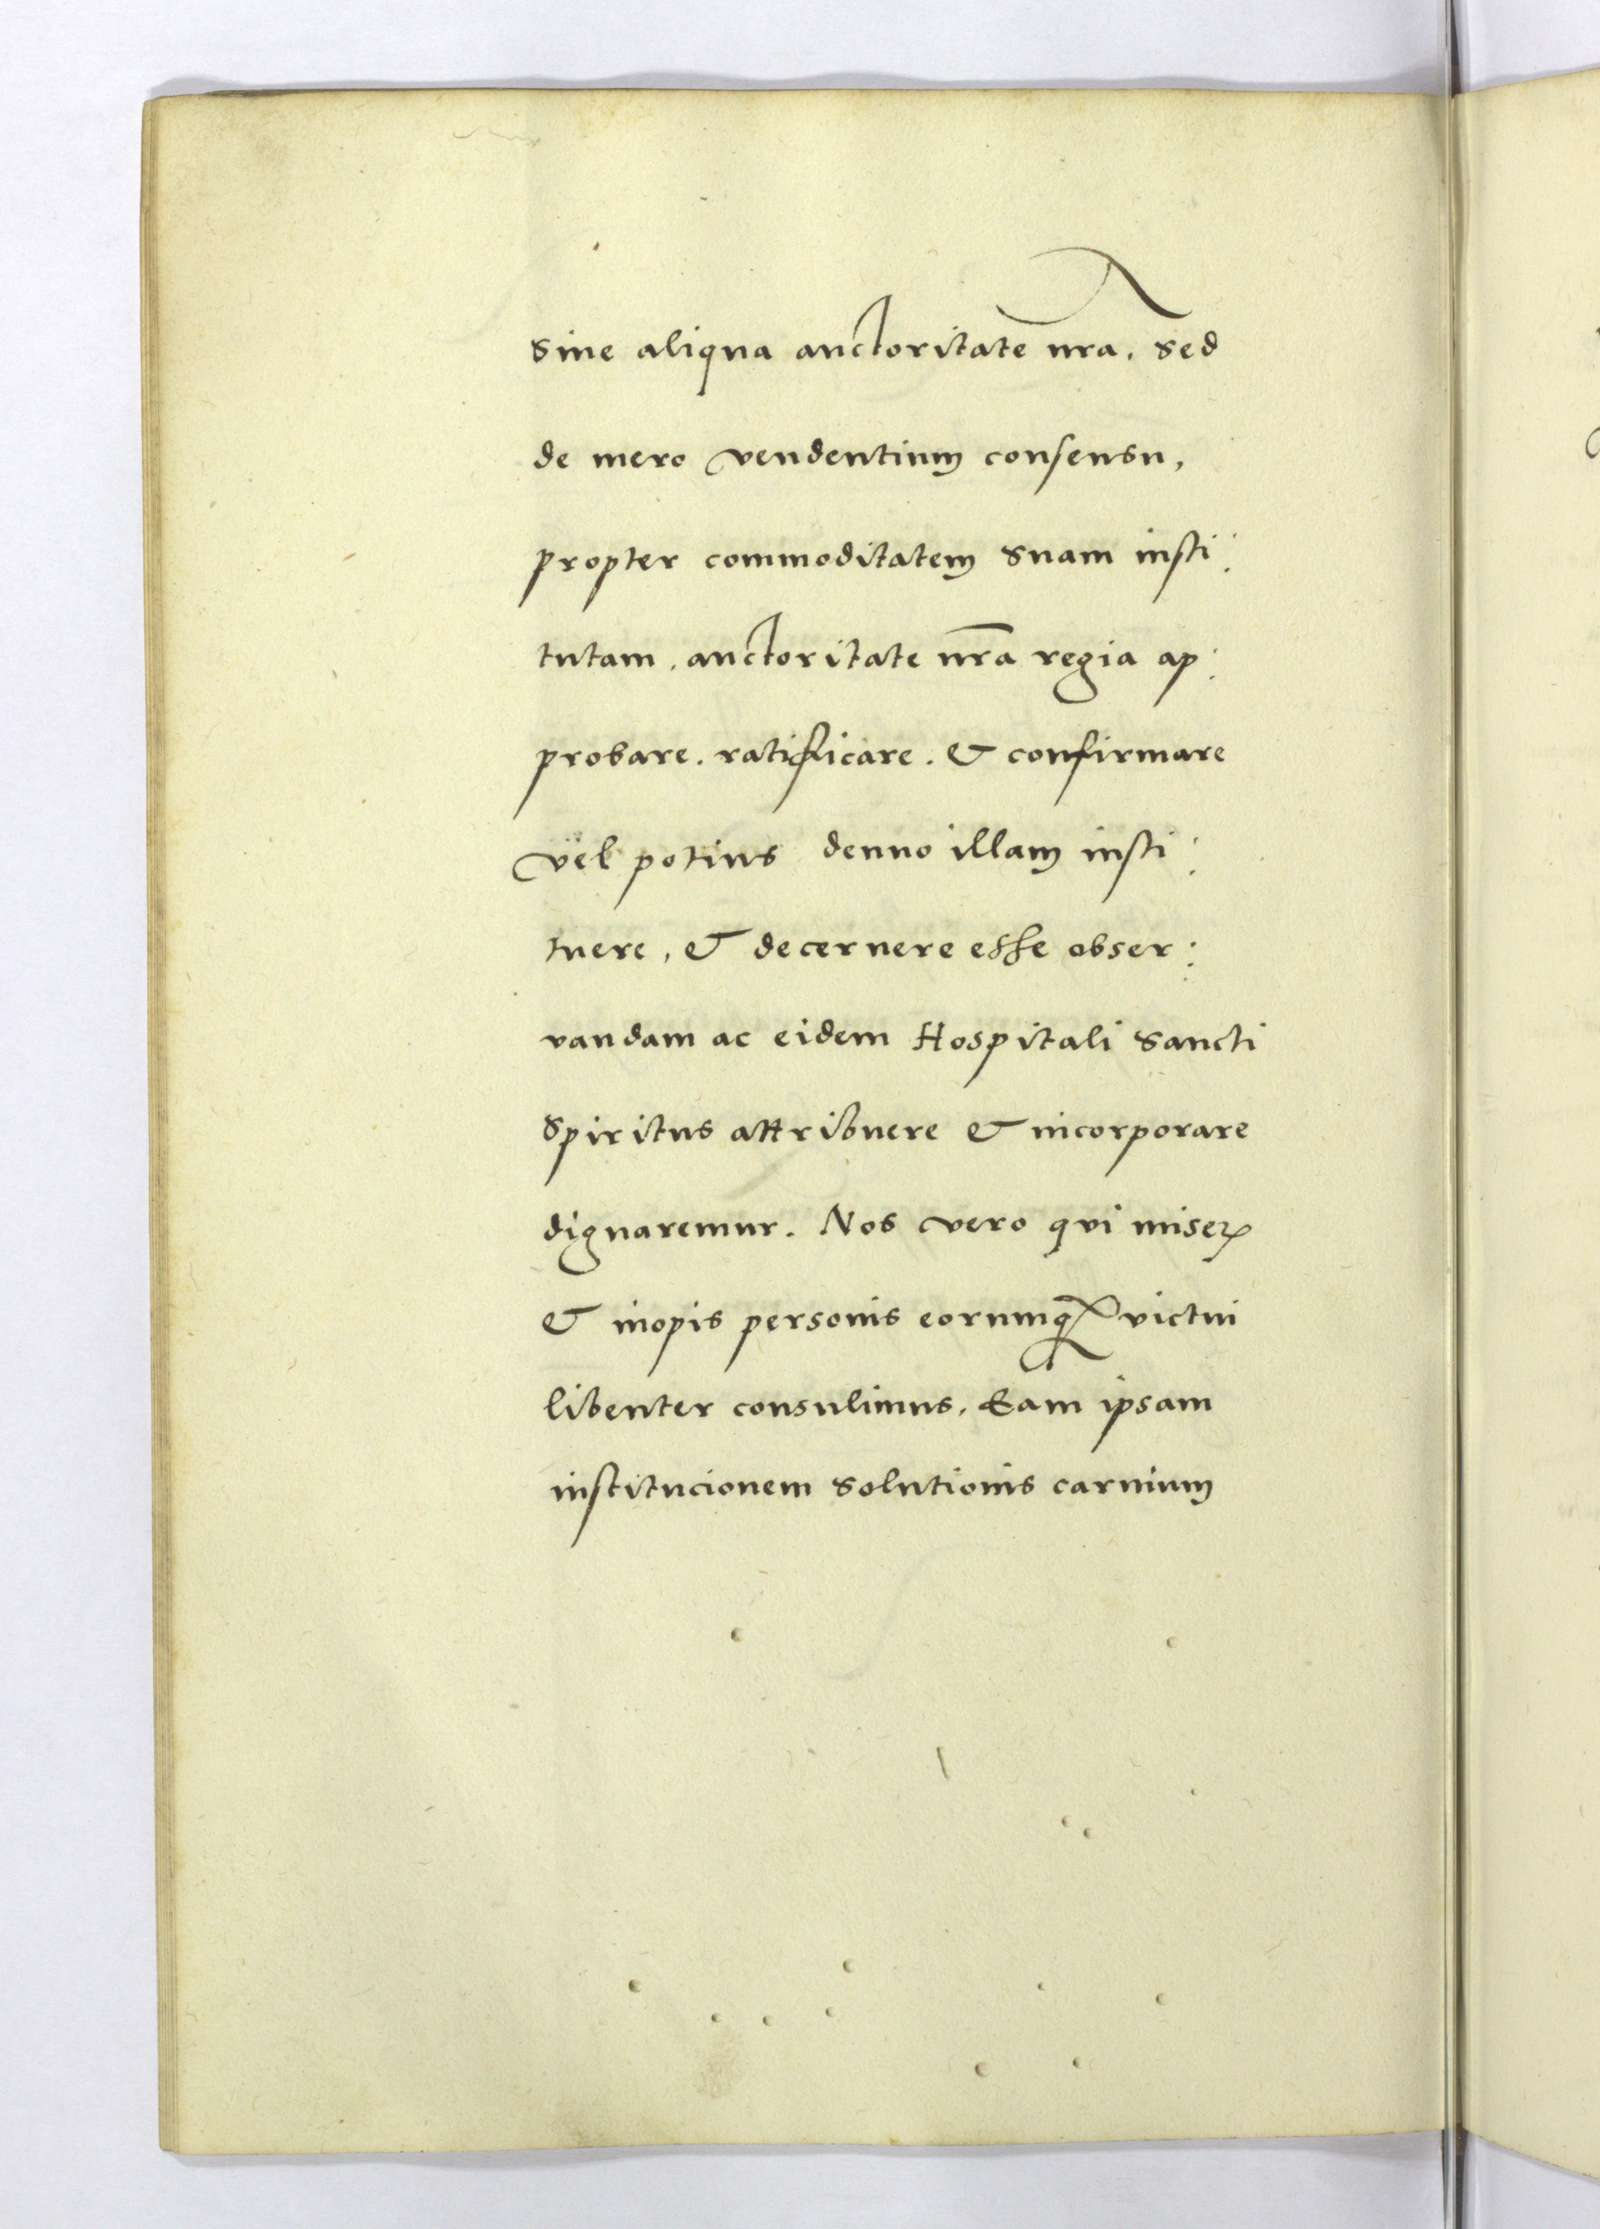 sine aliqua auctoritate nr̄a, sed
de mero vendentium consensu,
propter commoditatem suam insti:
tutam, auctoritate nr̄a regia ap:
probare. ratificare. & confirmare
vel potius denuo illam insti:
tuere, & decernere esse obser:
vandam ac eidem Hospitali sancti
Spiritus attribuere & incorporare
dignaremur. Nos vero qui miseꝝ
& inopis personis eorumqꝫ victui
libenter consulimus, Eam ipsam
institucionem solutionis carnium